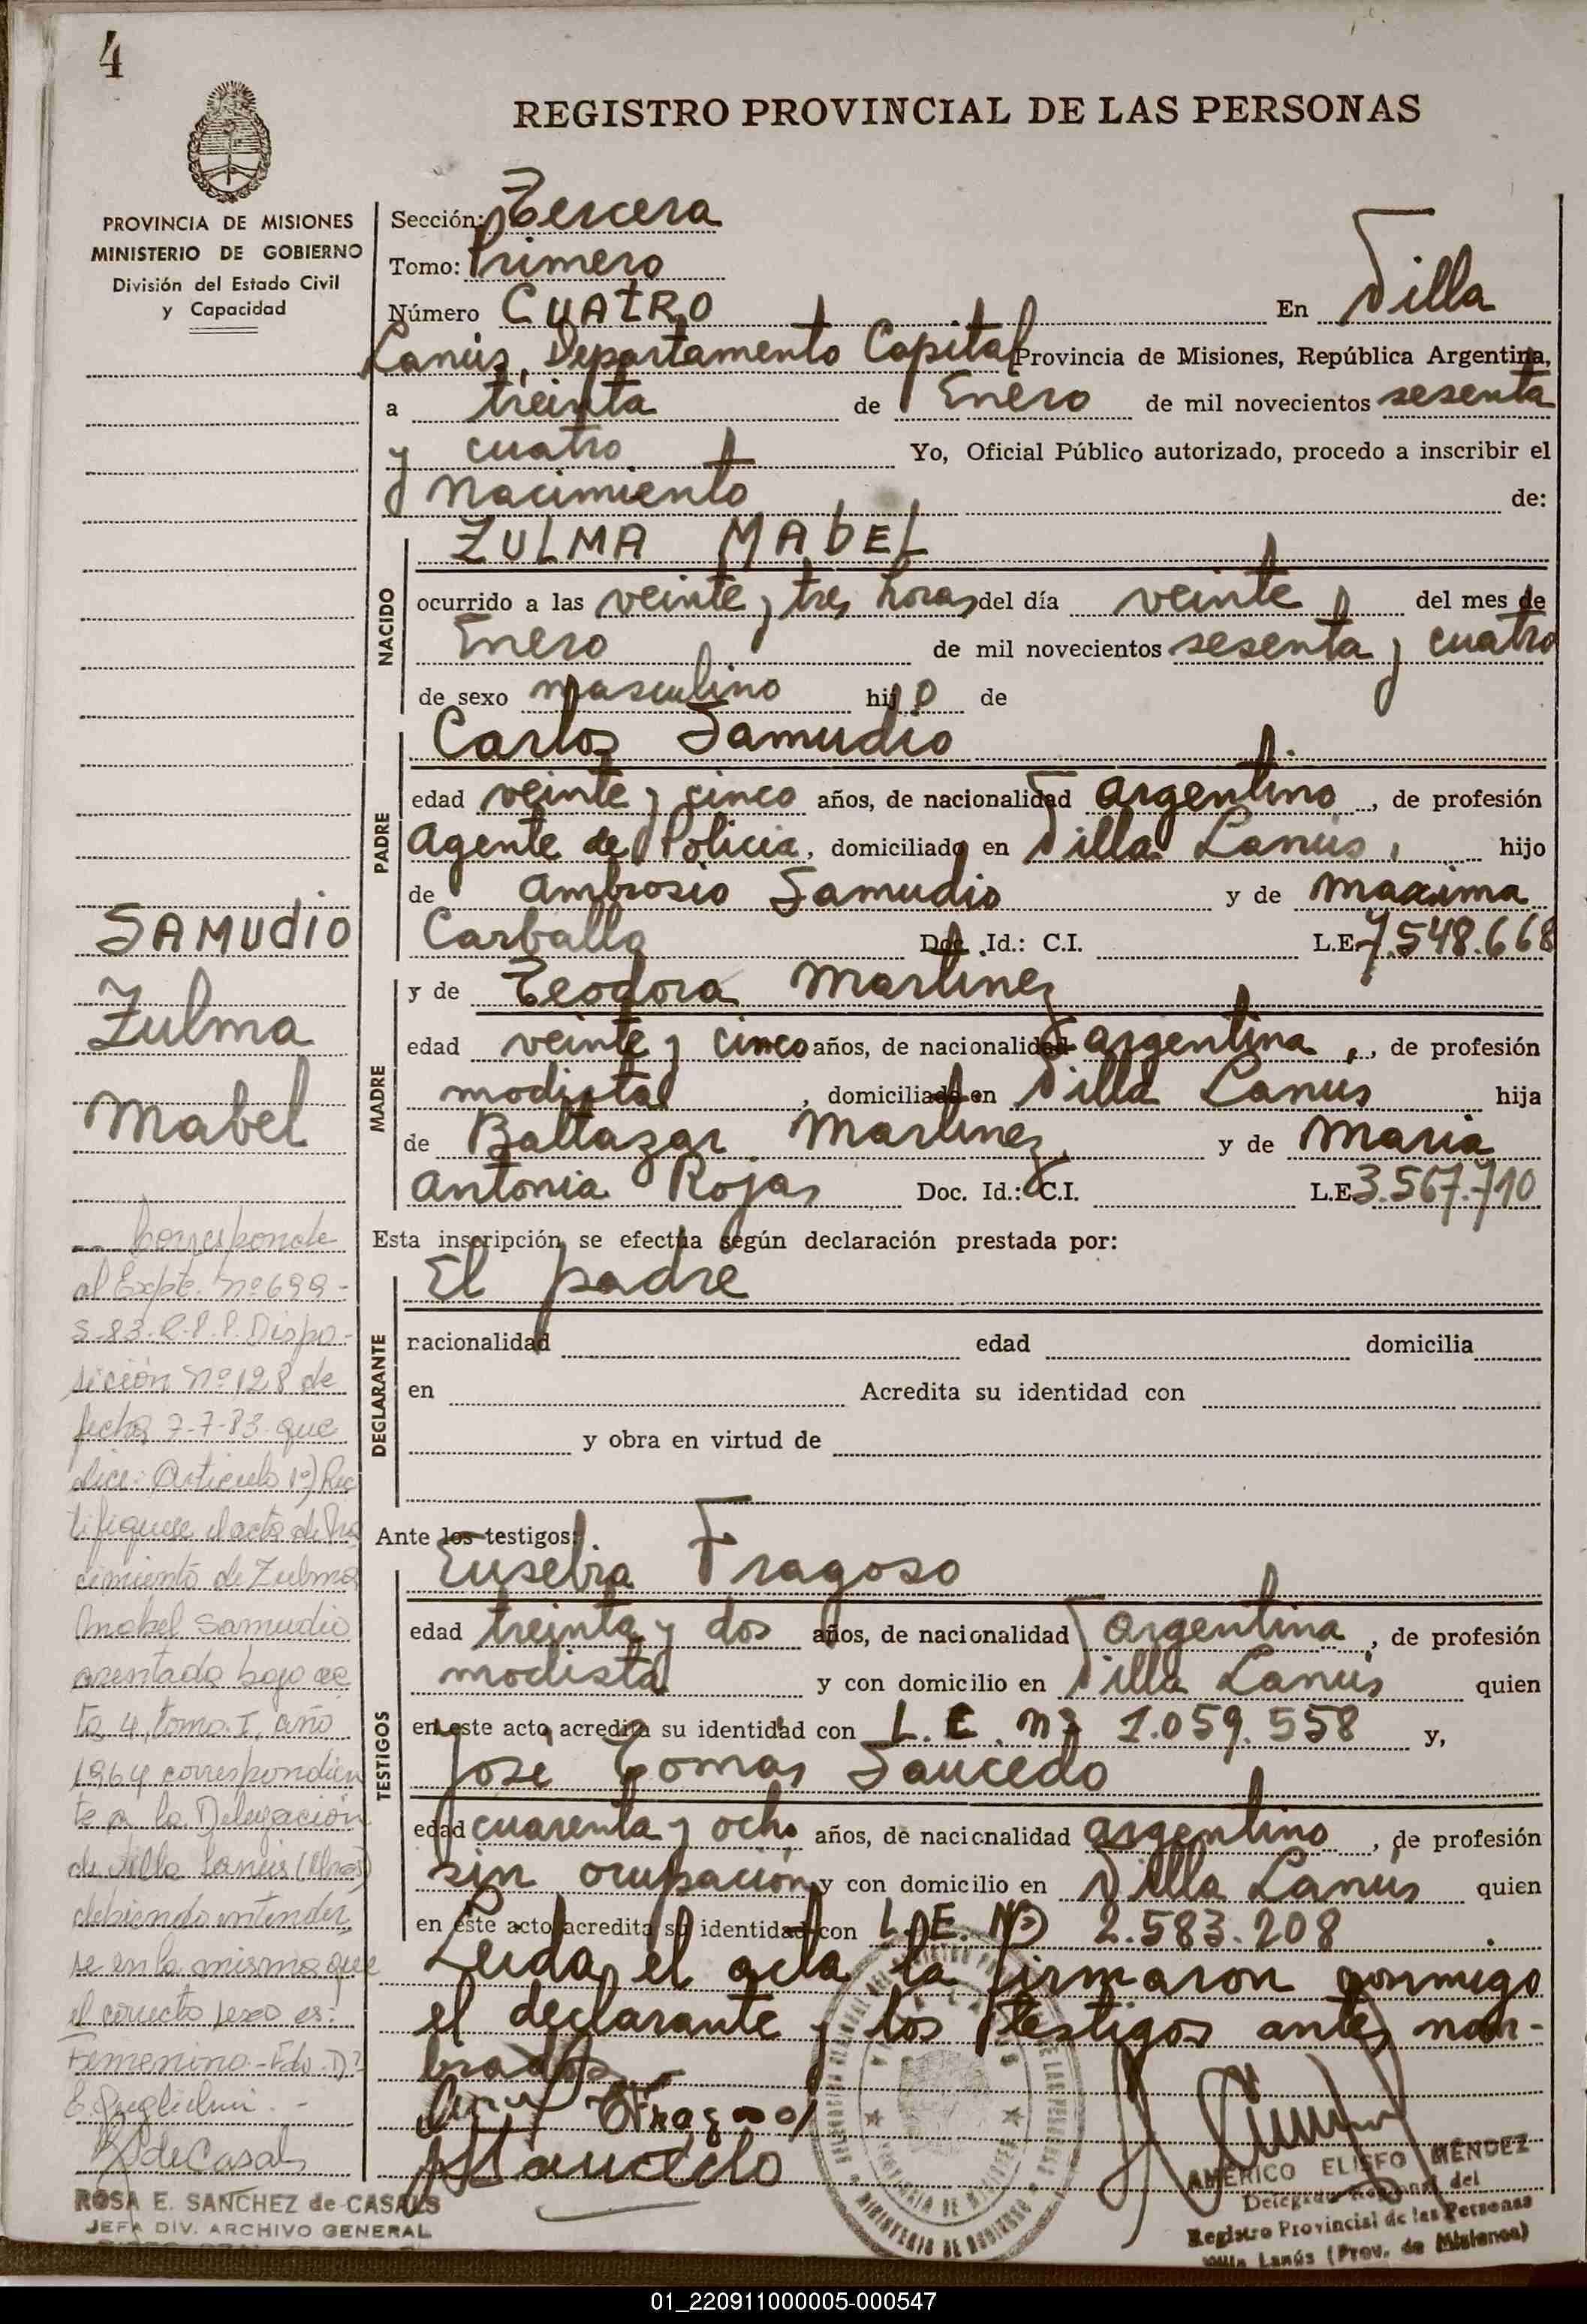 4
REGISTRO PROVINCIAL DE LAS PERSONAS
PROVINCIA DE MISIONES
MINISTERIO DE GOBIERNO
División del Estado Civil
y Capacidad
Sección: Tercera
Tomo: Primero
Número CUATRO En Villa
Lanús, Departamento Capital Provincia de Misiones, República Argentina,
a treinta de Enero de mil novecientos sesenta
y cuatro Yo, Oficial Público autorizado, procedo a inscribir el
Nacimiento de:
NACIDO
ZULMA MABEL
ocurrido a las veinte y tres horas del día veinte del mes de
Enero de mil novecientos sesenta y cuatro
de sexo masculino hijo de
PADRE
Carlos Samudio
edad veinte y cinco años, de nacionalidad argentino, de profesión
Agente de Policia, domiciliado en Villa Lanús, hijo
de Ambrosio Samudio y de Maxima
Carballo Doc. Id.: C.I. L.E. 7.548.668
MADRE
y de Teodora Martinez
edad veinte y cinco años, de nacionalidad argentina, de profesión
modista, domiciliada en Villa Lanus hija
de Baltazar Martinez y de Maria
Antonia Rojas Doc. Id.: C.I. L.E. 3.567.710
Esta inscripción se efectúa según declaración prestada por:
DECLARANTE
El padre
nacionalidad edad domicilia
en Acredita su identidad con
y obra en virtud de
Ante los testigos:
TESTIGOS
Eusebia Fragoso
edad treinta y dos años, de nacionalidad Argentina, de profesión
modista y con domicilio en Villa Lanús quien
en este acto acredita su identidad con L.C. Nº 1.059.558 y,
Jose Tomas Saucedo
edad cuarenta y ocho años, de nacionalidad argentino, de profesión
sin ocupación y con domicilio en Villa Lanús quien
en este acto acredita su identidad con L.E. Nº 2.583.208.
Leida el acta la firmaron conmigo
el declarante y los testigos antes nom-
brados
Fragoso
Saucedo
AMÉRICO ELISEO MÉNDEZ
Delegado Regional del
Registro Provincial de las Personas
Villa Lanús (Prov. de Misiones)
SAMUDIO
Zulma
Mabel
Corresponde
al Expte. Nº 699-
S-83-R.P.P. Dispo-
sición Nº 128 de
fecha 7-7-83 que
dice: Articulo 1º) Rec
tifiquese el acta de Na
cimiento de Zulma
Mabel Samudio
asentada bajo ac
ta 4, tomo I, año
1964 correspondien
te a la Delegación
de Villa Lanús (Mnes)
debiendo entender
se en la misma que
el correcto sexo es:
Femenino.-Fdo. D?
E. Guglielmi.-
R S de Casals
ROSA E. SANCHEZ de CASALS
JEFA DIV. ARCHIVO GENERAL
01_220911000005-000547